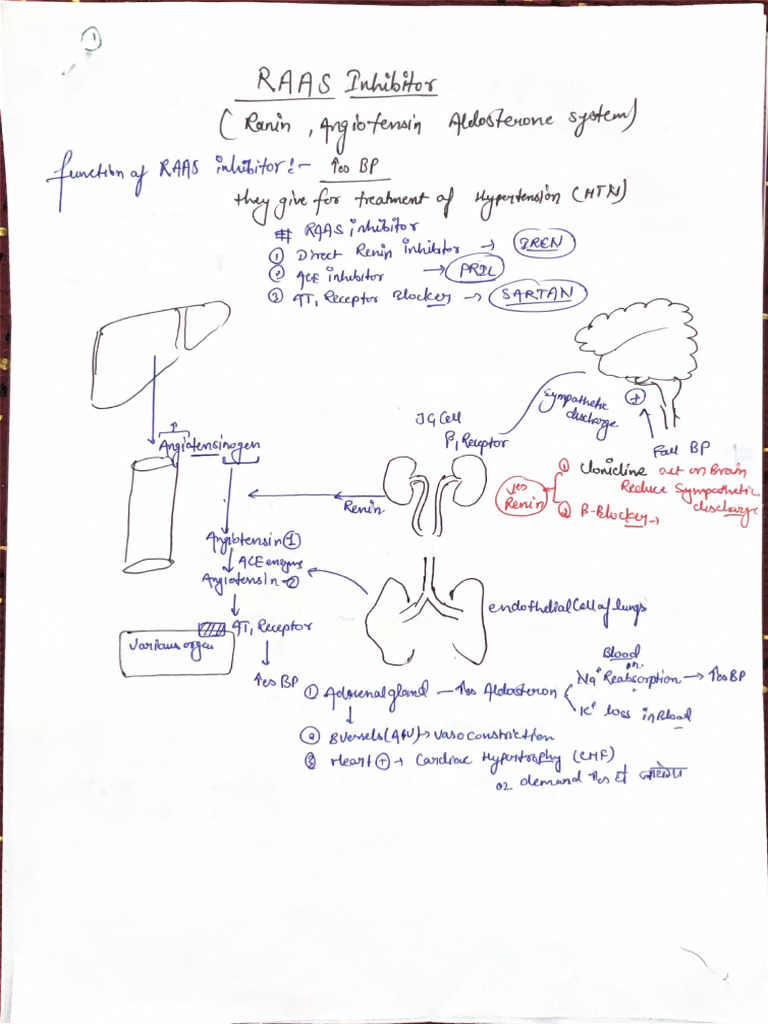 1
RAAS Inhibitor
(Ranin, Angiotensin Aldosterone system)
function of RAAS inhibitor:- ↑es BP
they give for treatment of Hypertension (HTN)
# RAAS inhibitor
① Direct Renin inhibitor → IREN
② ACE inhibitor → PRIL
③ AT₁ Receptor Blocker → SARTAN
Sympathetic discharge
+
JG Cell
β₁ Receptor
Fall BP
Angiotensinogen
↑
① Clonidine act on Brain
Reduce Sympathetic
discharge
↓es Renin
② B-Blocker →
Renin
Angiotensin ①
↓ ACE enzyme
Angiotensin-②
endothelial Cell of lungs
AT₁ Receptor
Various organ
↑es BP
① Adrenal gland – ↑es Aldosteron
Blood
Na⁺ Reabsorption → ↑es BP
K⁺ loss in Blood
② B Versels (A/V) → vasoconstriction
③ Heart ⊕ → Cardiac Hypertrophy (CHF)
O2 demand ↑es